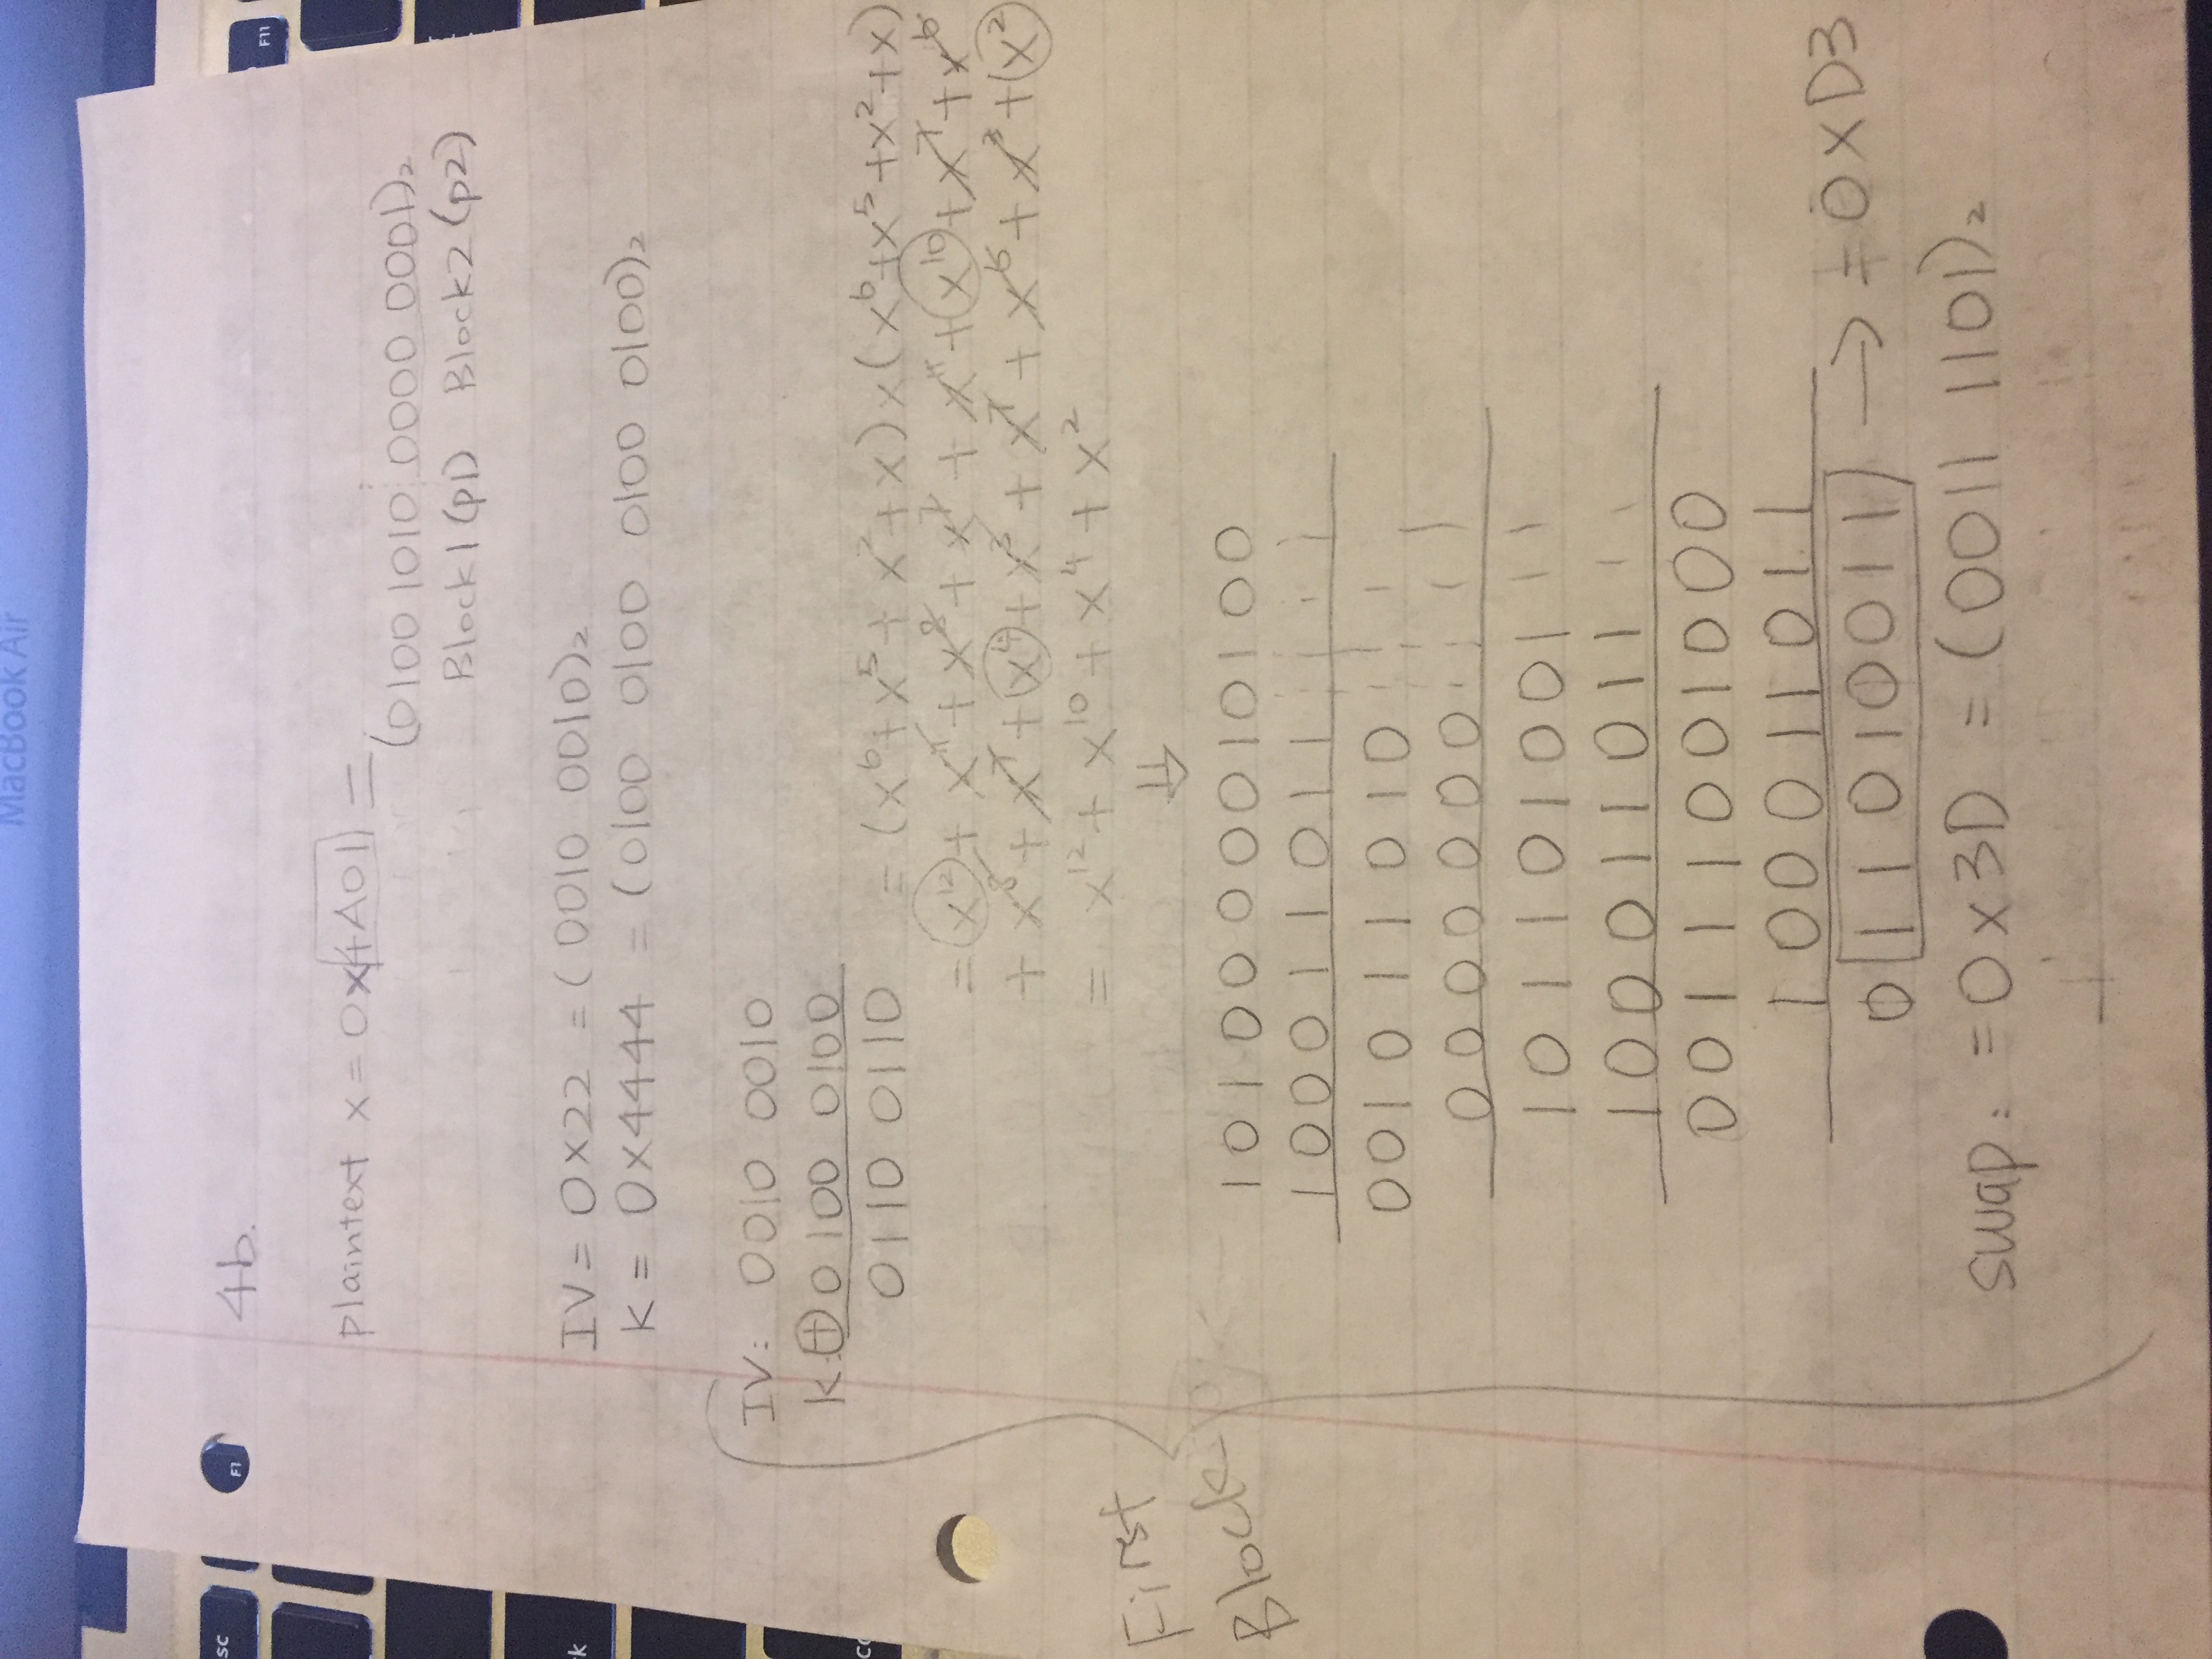 MacBook Air
F11
F1
esc
4b.
plaintext x = 0x4A01 =
(0100 1010 0000 0001)₂
Block1 (p1) Block2 (p2)
IV = 0x22 = (0010 0010)₂
K = 0x4444 = (0100 0100 0100 0100)₂
IV: 0010 0010
K: ⊕ 0100 0100
0110 0110
= (x⁶ + x⁵ + x² + x) x (x⁶ + x⁵ + x² + x)
= x¹² + x¹¹ + x⁸ + x⁷ + x¹¹ + x¹⁰ + x⁷ + x⁶
+ x⁸ + x⁷ + x⁴ + x³ + x⁷ + x⁶ + x³ + x²
= x¹² + x¹⁰ + x⁴ + x²
⇓
First
Block
1010000010100
100011011
001011010
000000000
101110100 1
100011011
001110010100
100011011
011010011 → = 0xD3
swap: = 0x3D = (0011 1101)₂